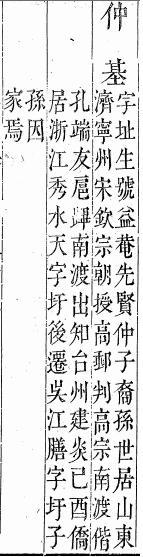 仲基
字址生號益菴先賢仲子裔孫世居山東
濟寧州宋欽宗朝授高郵判高宗南渡偕
孔端友扈蹕南渡出知台州建炎己酉僑
居浙江秀水天字圩後遷吳江膳字圩子
孫因
家焉